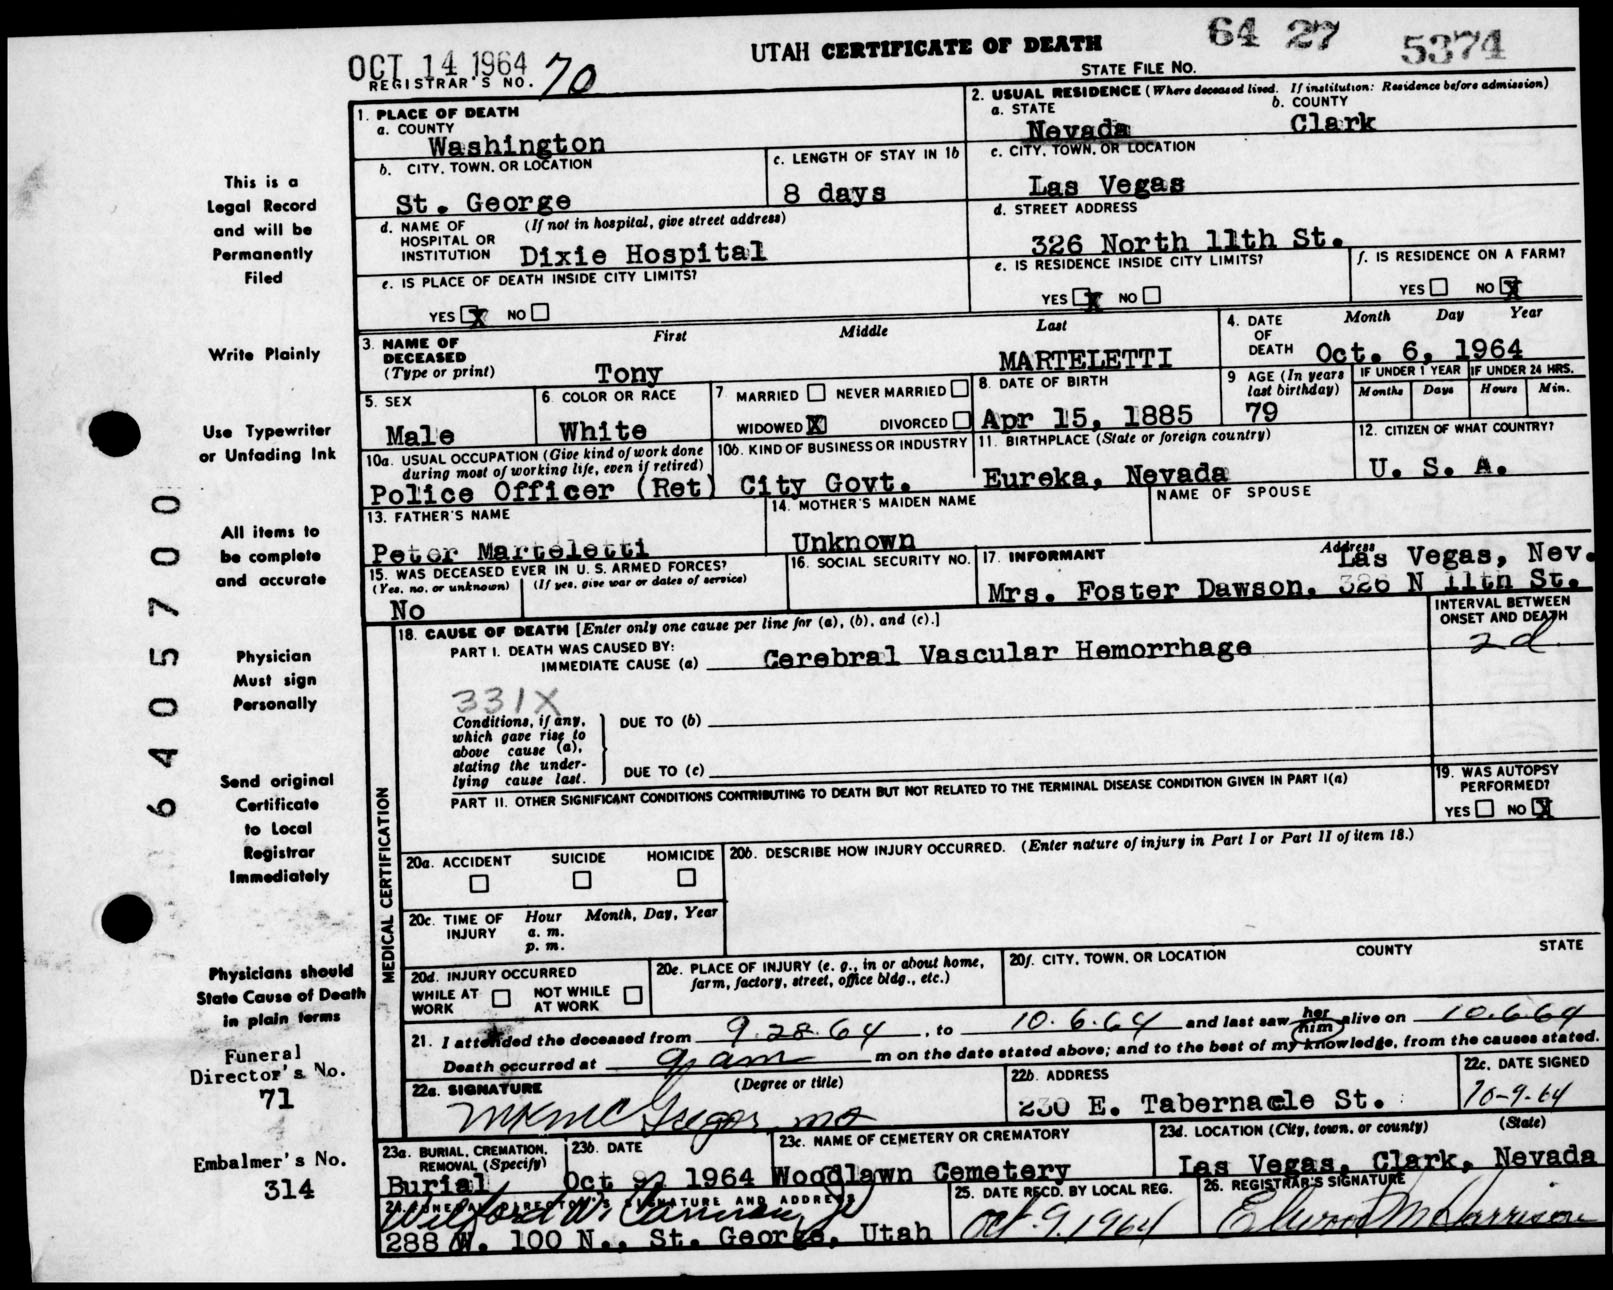 OCT 14 1964
REGISTRAR'S NO. 70
UTAH CERTIFICATE OF DEATH
64 27 5374
STATE FILE NO.
1. PLACE OF DEATH
a. COUNTY
Washington
2. USUAL RESIDENCE (Where deceased lived. If institution: Residence before admission)
a. STATE
Nevada
b. COUNTY
Clark
b. CITY, TOWN, OR LOCATION
St. George
c. LENGTH OF STAY IN 1b
8 days
c. CITY, TOWN, OR LOCATION
Las Vegas
d. NAME OF HOSPITAL OR INSTITUTION
(If not in hospital, give street address)
Dixie Hospital
d. STREET ADDRESS
326 North 11th St.
e. IS PLACE OF DEATH INSIDE CITY LIMITS?
YES X NO
e. IS RESIDENCE INSIDE CITY LIMITS?
YES X NO
f. IS RESIDENCE ON A FARM?
YES NO X
3. NAME OF DECEASED
(Type or print)
First Middle Last
Tony MARTELETTI
4. DATE OF DEATH
Month Day Year
Oct. 6, 1964
5. SEX
Male
6. COLOR OR RACE
White
7 MARRIED NEVER MARRIED
WIDOWED X DIVORCED
8. DATE OF BIRTH
Apr 15, 1885
9 AGE (In years last birthday)
79
IF UNDER 1 YEAR
Months Days
IF UNDER 24 HRS.
Hours Min.
10a. USUAL OCCUPATION (Give kind of work done during most of working life, even if retired)
Police Officer (Ret)
10b. KIND OF BUSINESS OR INDUSTRY
City Govt.
11. BIRTHPLACE (State or foreign country)
Eureka, Nevada
12. CITIZEN OF WHAT COUNTRY?
U. S. A.
13. FATHER'S NAME
Peter Marteletti
14. MOTHER'S MAIDEN NAME
Unknown
NAME OF SPOUSE
15. WAS DECEASED EVER IN U. S. ARMED FORCES?
(Yes, no, or unknown) (If yes, give war or dates of service)
No
16. SOCIAL SECURITY NO.
17. INFORMANT
Address
Las Vegas, Nev.
Mrs. Foster Dawson, 326 N 11th St.
MEDICAL CERTIFICATION
18. CAUSE OF DEATH [Enter only one cause per line for (a), (b), and (c).]
PART I. DEATH WAS CAUSED BY:
IMMEDIATE CAUSE (a) Cerebral Vascular Hemorrhage
INTERVAL BETWEEN ONSET AND DEATH
2 d.
331X
Conditions, if any, which gave rise to above cause (a), stating the underlying cause last.
DUE TO (b)
DUE TO (c)
PART II. OTHER SIGNIFICANT CONDITIONS CONTRIBUTING TO DEATH BUT NOT RELATED TO THE TERMINAL DISEASE CONDITION GIVEN IN PART I(a)
19. WAS AUTOPSY PERFORMED?
YES NO X
20a. ACCIDENT SUICIDE HOMICIDE
20b. DESCRIBE HOW INJURY OCCURRED. (Enter nature of injury in Part I or Part II of item 18.)
20c. TIME OF INJURY
Hour Month, Day, Year
a. m.
p. m.
20d. INJURY OCCURRED
WHILE AT WORK NOT WHILE AT WORK
20e. PLACE OF INJURY (e. g., in or about home, farm, factory, street, office bldg., etc.)
20f. CITY, TOWN, OR LOCATION COUNTY STATE
21. I attended the deceased from 9.28.64, to 10.6.64 and last saw her him alive on 10.6.64
Death occurred at 9 am m on the date stated above; and to the best of my knowledge, from the causes stated.
22a. SIGNATURE (Degree or title)
MK McGregor MD
22b. ADDRESS
230 E. Tabernacle St.
22c. DATE SIGNED
10-9-64
23a. BURIAL, CREMATION, REMOVAL (Specify)
Burial
23b. DATE
Oct 9, 1964
23c. NAME OF CEMETERY OR CREMATORY
Woodlawn Cemetery
23d. LOCATION (City, town, or county) (State)
Las Vegas, Clark, Nevada
24. FUNERAL DIRECTOR'S SIGNATURE AND ADDRESS
288 W. 100 N., St. George, Utah
25. DATE RECD. BY LOCAL REG.
Oct. 9, 1964
26. REGISTRAR'S SIGNATURE
This is a
Legal Record
and will be
Permanently
Filed
Write Plainly
Use Typewriter
or Unfading Ink
All items to
be complete
and accurate
Physician
Must sign
Personally
Send original
Certificate
to Local
Registrar
Immediately
Physicians should
State Cause of Death
in plain terms
Funeral
Director's No.
71
Embalmer's No.
314
6405700